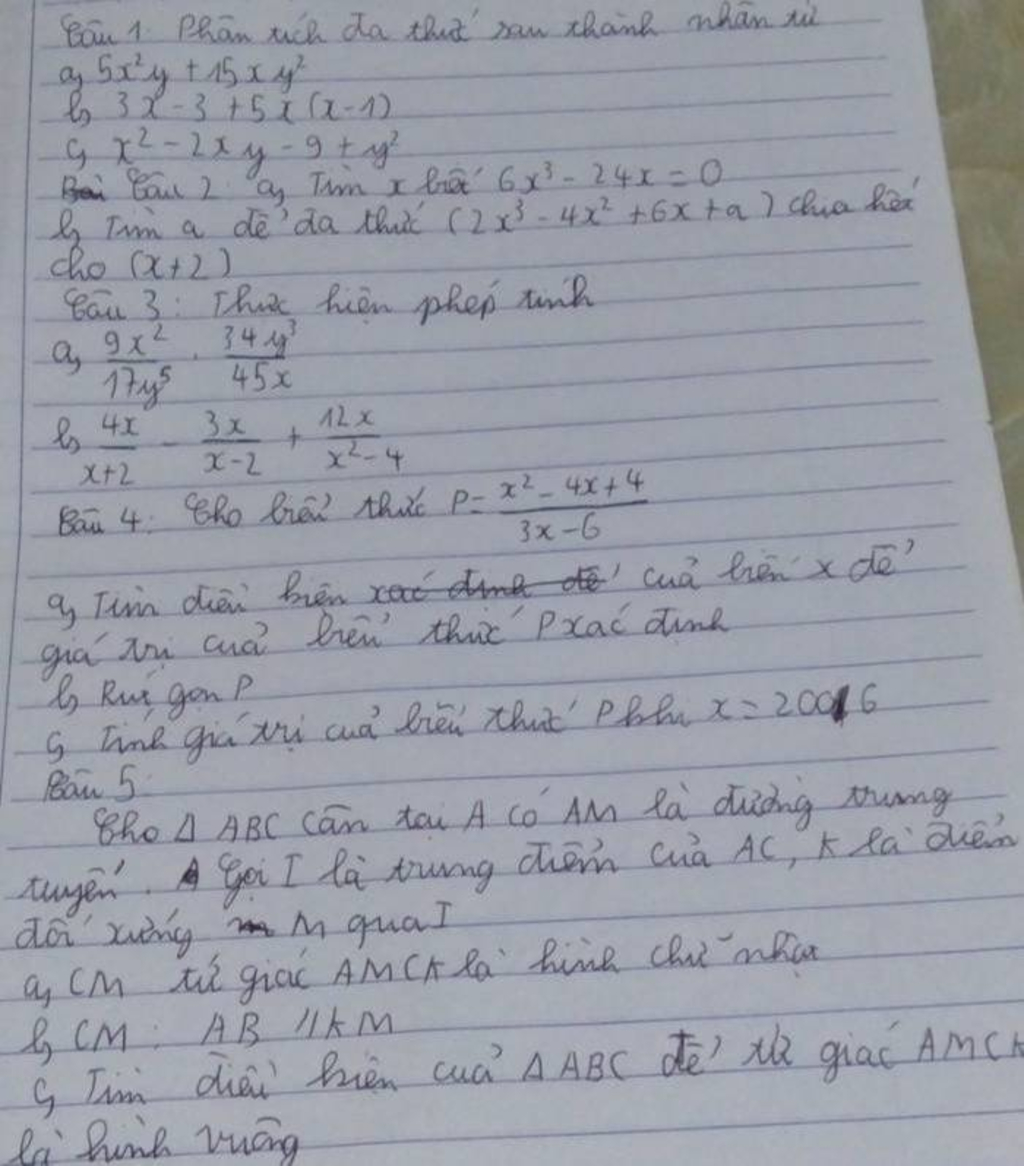 Câu 1. Phân tích đa thức sau thành nhân tử
a, 5x²y + 15xy²
b, 3x - 3 + 5x(x-1)
c, x² - 2xy - 9 + y²
Bài Câu 2. a, Tìm x biết 6x³ - 24x = 0
b, Tìm a để đa thức (2x³ - 4x² + 6x + a) chia hết
cho (x+2)
Câu 3: Thực hiện phép tính
a, 9x²/17y⁵ . 34y³/45x
b, 4x/x+2 - 3x/x-2 + 12x/x²-4
Câu 4. Cho biểu thức P = x² - 4x + 4/3x - 6
a, Tìm điều kiện xác định để của biến x để
giá trị của biểu thức P xác định
b, Rút gọn P
c, Tính giá trị của biểu thức P khi x = 20016
Câu 5
Cho Δ ABC cân tại A có AM là đường trung
tuyến. Gọi I là trung điểm của AC, K là điểm
đối xứng M qua I
a, CM tứ giác AMCK là hình chữ nhật
b, CM: AB // KM
c, Tìm điều kiện của Δ ABC để tứ giác AMCK
là hình vuông